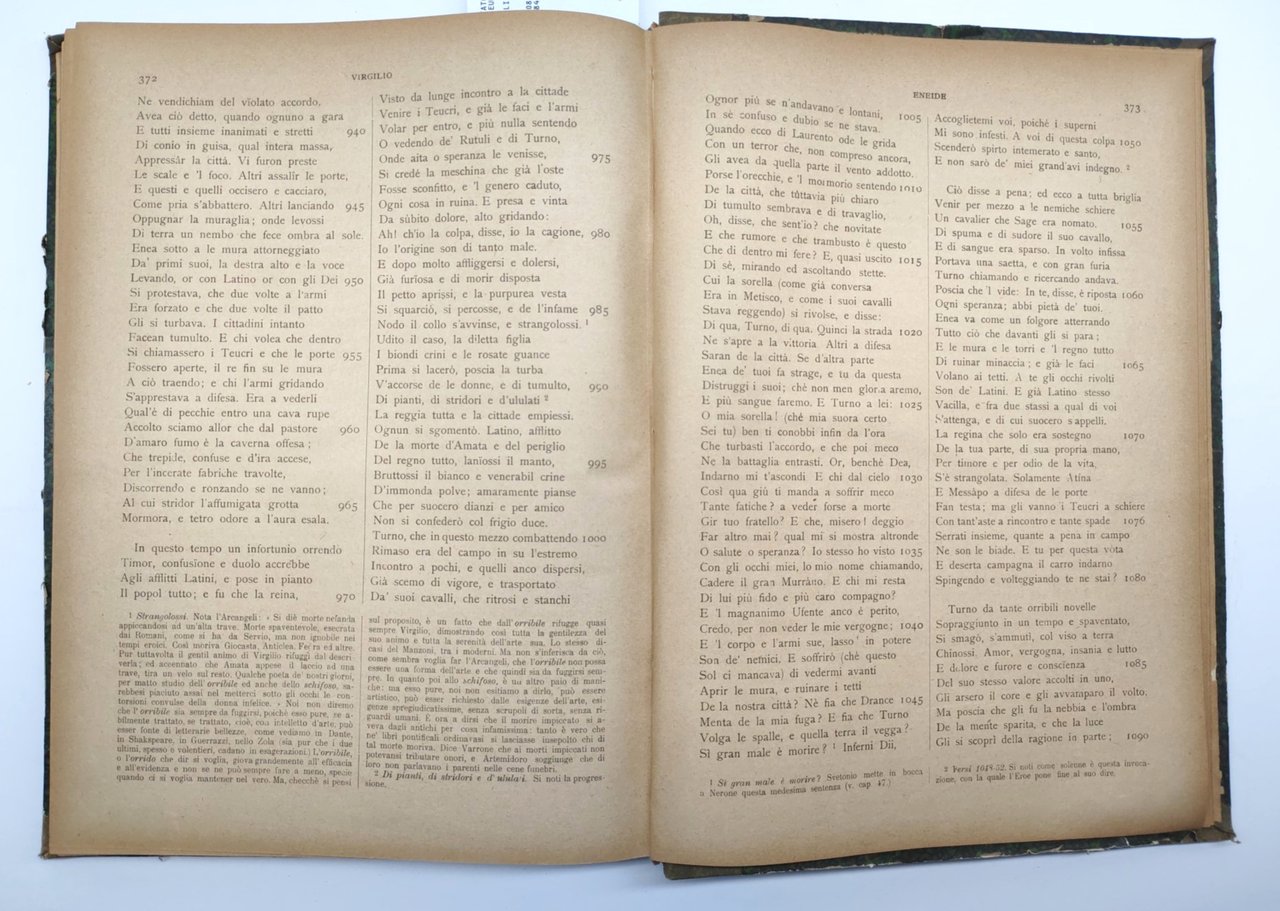 372
VIRGILIO
Ne vendichiam del violato accordo,
Avea ciò detto, quando ognuno a gara
E tutti insieme inanimati e stretti 940
Di conio in guisa, qual intera massa,
Appressâr la città. Vi furon preste
Le scale e 'l foco. Altri assalîr le porte,
E questi e quelli occisero e cacciaro,
Come pria s'abbattero. Altri lanciando 945
Oppugnar la muraglia; onde levossi
Di terra un nembo che fece ombra al sole.
Enea sotto a le mura attorneggiato
Da' primi suoi, la destra alto e la voce
Levando, or con Latino or con gli Dei 950
Si protestava, che due volte a l'armi
Era forzato e che due volte il patto
Gli si turbava. I cittadini intanto
Facean tumulto. E chi volea che dentro
Si chiamassero i Teucri e che le porte 955
Fossero aperte, il re fin su le mura
A ciò traendo; e chi l'armi gridando
S'apprestava a difesa. Era a vederli
Qual'è di pecchie entro una cava rupe
Accolto sciamo allor che dal pastore 960
D'amaro fumo è la caverna offesa;
Che trepide, confuse e d'ira accese,
Per l'incerate fabriche travolte,
Discorrendo e ronzando se ne vanno;
Al cui stridor l'affumigata grotta 965
Mormora, e tetro odore a l'aura esala.
In questo tempo un infortunio orrendo
Timor, confusione e duolo accrebbe
Agli afflitti Latini, e pose in pianto
Il popol tutto; e fu che la reina, 970
Visto da lunge incontro a la cittade
Venire i Teucri, e già le faci e l'armi
Volar per entro, e più nulla sentendo
O vedendo de' Rutuli e di Turno,
Onde aita o speranza le venisse, 975
Si credè la meschina che già l'oste
Fosse sconfitto, e 'l genero caduto,
Ogni cosa in ruina. E presa e vinta
Da sùbito dolore, alto gridando:
Ah! ch'io la colpa, disse, io la cagione, 980
Io l'origine son di tanto male.
E dopo molto affliggersi e dolersi,
Già furiosa e di morir disposta
Il petto aprissi, e la purpurea vesta
Si squarciò, si percosse, e de l'infame 985
Nodo il collo s'avvinse, e strangolossi. ¹
Udito il caso, la diletta figlia
I biondi crini e le rosate guance
Prima si lacerò, poscia la turba
V'accorse de le donne, e di tumulto, 990
Di pianti, di stridori e d'ululati ²
La reggia tutta e la cittade empiessi.
Ognun si sgomentò. Latino, afflitto
De la morte d'Amata e del periglio
Del regno tutto, lanïossi il manto, 995
Bruttossi il bianco e venerabil crine
D'immonda polve; amaramente pianse
Che per suocero dianzi e per amico
Non si confederò col frigio duce.
Turno, che in questo mezzo combattendo 1000
Rimaso era del campo in su l'estremo
Incontro a pochi, e quelli anco dispersi,
Già scemo di vigore, e trasportato
Da' suoi cavalli, che ritrosi e stanchi
¹ Strangolossi. Nota l'Arcangeli: « Si diè morte nefanda
appiccandosi ad un'alta trave. Morte spaventevole, esecrata
dai Romani, come si ha da Servio, ma non ignobile nei
tempi eroici. Così moriva Giocasta, Anticlea, Fedra ed altre.
Pur tuttavolta il gentil animo di Virgilio rifuggì dal descri-
verla; ed accennato che Amata appese il laccio ad una
trave, tira un velo sul resto. Qualche poeta de' nostri giorni,
per matto studio dell'orribile ed anche dello schifoso, sa-
rebbesi piaciuto assai nel metterci sotto gli occhi le con-
torsioni convulse della donna infelice. » Noi non diremo
che l'orribile sia sempre da fuggirsi, poichè esso pure, se a-
bilmente trattato, se trattato, cioè, con intelletto d'arte, può
esser fonte di letterarie bellezze, come vediamo in Dante,
in Shakspeare, in Guerrazzi, nello Zola (sia pur che i due
ultimi, spesso e volentieri, cadano in esagerazioni.) L'orribile,
o l'orrido che dir si voglia, giova grandemente all'efficacia
e all'evidenza e non se ne può sempre fare a meno, specie
quando ci si voglia mantener nel vero. Ma, checchè si pensi
sul proposito, è un fatto che dall'orribile rifugge quasi
sempre Virgilio, dimostrando così tutta la gentilezza del
suo animo e tutta la serenità dell'arte sua. Lo stesso di-
casi del Manzoni, tra i moderni. Ma non s'inferisca da ciò,
come sembra voglia far l'Arcangeli, che l'orribile non possa
essere una forma dell'arte e che quindi sia da fuggirsi sem-
pre. In quanto poi allo schifoso, è un altro paio di mani-
che: ma esso pure, noi non esitiamo a dirlo, può essere
artistico, può esser richiesto dalle esigenze dell'arte, esi-
genze spregiudicatissime, senza scrupoli di sorta, senza ri-
guardi umani. E ora a dirsi che il morire impiccato si a-
veva dagli antichi per cosa infamissima: tanto è vero che
ne' libri pontificali ordinavasi si lasciasse insepolto chi di
tal morte moriva. Dice Varrone che ai morti impiccati non
potevansi tributare onori, e Artemidoro soggiunge che di
loro non parlavano i parenti nelle cene funebri.
² Di pianti, di stridori e d'ululati. Si noti la progres-
sione.
ENEIDE
373
Ognor più se n'andavano e lontani, 1005
In sè confuso e dubio se ne stava.
Quando ecco di Laurento ode le grida
Con un terror che, non compreso ancora,
Gli avea da quella parte il vento addotto.
Porse l'orecchie, e 'l mormorio sentendo 1010
De la città, che tuttavia più chiaro
Di tumulto sembrava e di travaglio,
Oh, disse, che sent'io? che novitate
E che rumore e che trambusto è questo
Che di dentro mi fere? E, quasi uscito 1015
Di sè, mirando ed ascoltando stette.
Cui la sorella (come già conversa
Era in Metisco, e come i suoi cavalli
Stava reggendo) si rivolse, e disse:
Di qua, Turno, di qua. Quinci la strada 1020
Ne s'apre a la vittoria. Altri a difesa
Saran de la città. Se d'altra parte
Enea de' tuoi fa strage, e tu da questa
Distruggi i suoi; chè non men gloria aremo,
E più sangue faremo. E Turno a lei: 1025
O mia sorella! (chè mia suora certo
Sei tu) ben ti conobbi infin da l'ora
Che turbasti l'accordo, e che poi meco
Ne la battaglia entrasti. Or, benchè Dea,
Indarno mi t'ascondi. E chi dal cielo 1030
Così qua giù ti manda a soffrir meco
Tante fatiche? a veder forse a morte
Gir tuo fratello? E che, misero! deggio
Far altro mai? qual mi si mostra altronde
O salute o speranza? Io stesso ho visto 1035
Con gli occhi miei, lo mio nome chiamando,
Cadere il gran Murrâno. E chi mi resta
Di lui più fido e più caro compagno?
E 'l magnanimo Ufente anco è perito,
Credo, per non veder le mie vergogne; 1040
E 'l corpo e l'armi sue, lasso! in potere
Son de' nemici. E soffrirò (chè questo
Sol ci mancava) di vedermi avanti
Aprir le mura, e ruinare i tetti
De la nostra città? Nè fia che Drance 1045
Menta de la mia fuga? E fia che Turno
Volga le spalle, e quella terra il vegga?
Sì gran male è morire? ¹ Inferni Dii,
Accoglietemi voi, poichè i superni
Mi sono infesti. A voi di questa colpa 1050
Scenderò spirto intemerato e santo,
E non sarò de' miei grand'avi indegno. ²
Ciò disse a pena; ed ecco a tutta briglia
Venir per mezzo a le nemiche schiere
Un cavalier che Sage era nomato. 1055
Di spuma e di sudore il suo cavallo,
E di sangue era sparso. In volto infissa
Portava una saetta, e con gran furia
Turno chiamando e ricercando andava.
Poscia che 'l vide: In te, disse, è riposta 1060
Ogni speranza; abbi pietà de' tuoi.
Enea va come un folgore atterrando
Tutto ciò che davanti gli si para;
E le mura e le torri e 'l regno tutto
Di ruinar minaccia; e già le faci 1065
Volano ai tetti. A te gli occhi rivolti
Son de' Latini. E già Latino stesso
Vacilla, e fra due stassi a qual di voi
S'attenga, e di cui suocero s'appelli.
La regina che solo era sostegno 1070
De la tua parte, di sua propria mano,
Per timore e per odio de la vita,
S'è strangolata. Solamente Atina
E Messàpo a difesa de le porte
Fan testa; ma gli vanno i Teucri a schiere
Con tant'aste a rincontro e tante spade 1076
Serrati insieme, quante a pena in campo
Ne son le biade. E tu per questa vòta
E deserta campagna il carro indarno
Spingendo e volteggiando te ne stai? 1080
Turno da tante orribili novelle
Sopraggiunto in un tempo e spaventato,
Si smagò, s'ammutì, col viso a terra
Chinossi. Amor, vergogna, insania e lutto
E dolore e furore e conscïenza 1085
Del suo stesso valore accolti in uno,
Gli arsero il core e gli avvamparo il volto.
Ma poscia che gli fu la nebbia e l'ombra
De la mente sparita, e che la luce
Gli si scoprì della ragione in parte; 1090
¹ Sì gran male è morire? Svetonio mette in bocca
a Nerone questa medesima sentenza (v. cap 47.)
² Versi 1048-52. Si noti come solenne è questa invoca-
zione, con la quale l'Eroe pone fine al suo dire.